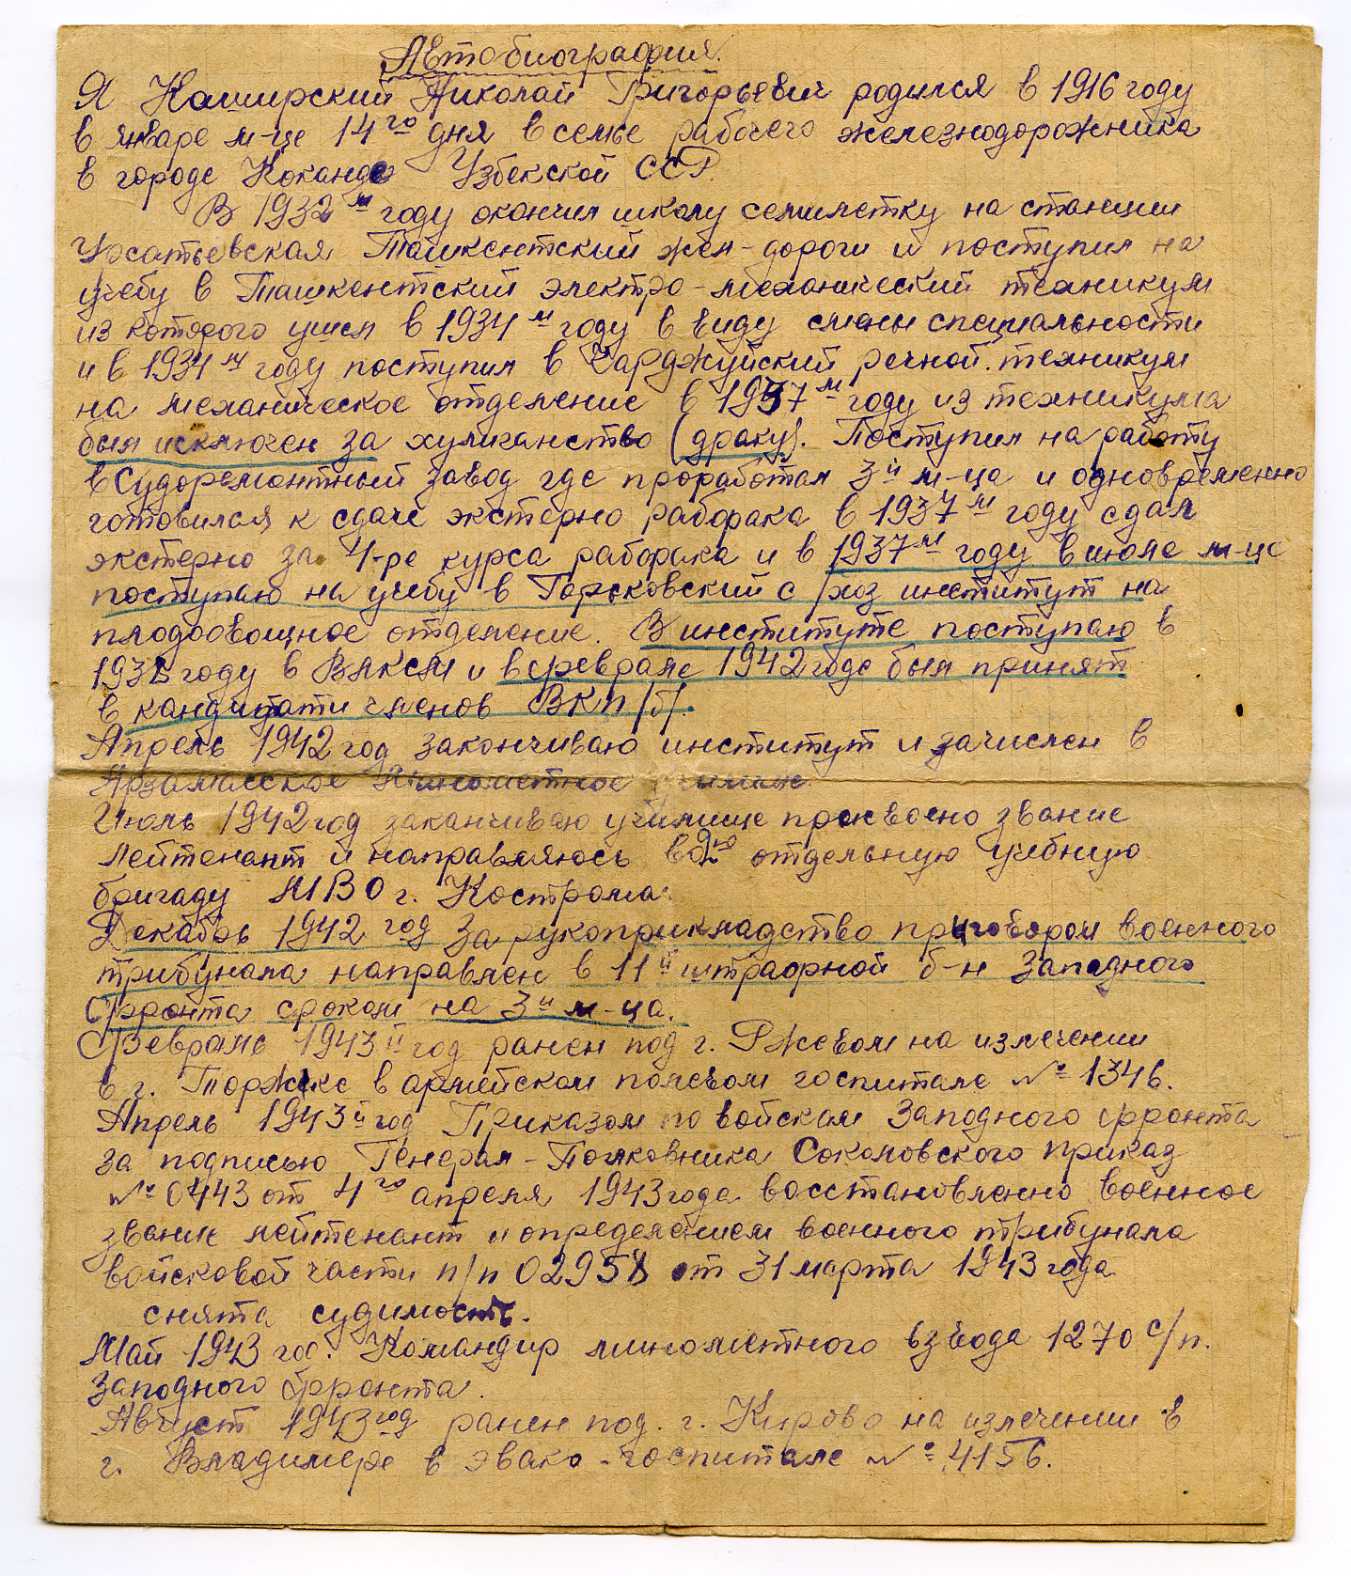 Автобиография.
Я Каширский Николай Григорьевич родился в 1916 году
в январе м-це 14го дня в семье рабочего железнодорожника
в городе Коканде Узбекской ССР.
В 1932м году окончил школу семилетку на станции
Урсатьевская Ташкентский жел-дороги и поступил на
учебу в Ташкентский электро-механический техникум
из которого ушел в 1934м году в виду смены специальности
и в 1934м году поступил в Чарджуйский речной техникум
на механическое отделение в 1937м году из техникума
был исключен за хулиганство (драку). Поступил на работу
в Судоремонтный завод где проработал 3й м-ца и одновременно
готовился к сдаче экстерно рабфака в 1937м году сдал
экстерно за 4-ре курса рабфака и в 1937м году в июле м-це
поступаю на учебу в Горьковский с/хоз институт на
плодоовощное отделение. В институте поступаю в
1938 году в ВЛКСМ и в феврале 1942 года был принят
в кандидати членов ВКП/б/.
Апрель 1942 год заканчиваю институт и зачислен в
Арзамасское Минометное училище.
Июль 1942 год заканчиваю училище присвоено звание
лейтенант и направляюсь во 2ую отдельную учебную
бригаду МВО г. Кострома.
Декабрь 1942 год За рукоприкладство приговором военного
трибунала направлен в 11й штрафной б-н Западного
фронта сроком на 3й м-ца.
Февраль 1943й год ранен под г. Ржевом на излечении
в г. Торжке в армейском полевом госпитале № 1346.
Апрель 1943й год Приказом по войскам Западного фронта
за подписью Генерал-Полковника Соколовского приказ
№ 0443 от 4го апреля 1943 года восстановленно военное
звание лейтенант и определением военного трибунала
войсковой части п/п 02958 от 31 марта 1943 года
снята судимость.
Май 1943 год. Командир минометного взвода 1270 с/п.
Западного фронта.
Август 1943 год ранен под. г. Кирово на излечении в
г. Владимере в эвако-госпитале № 4156.